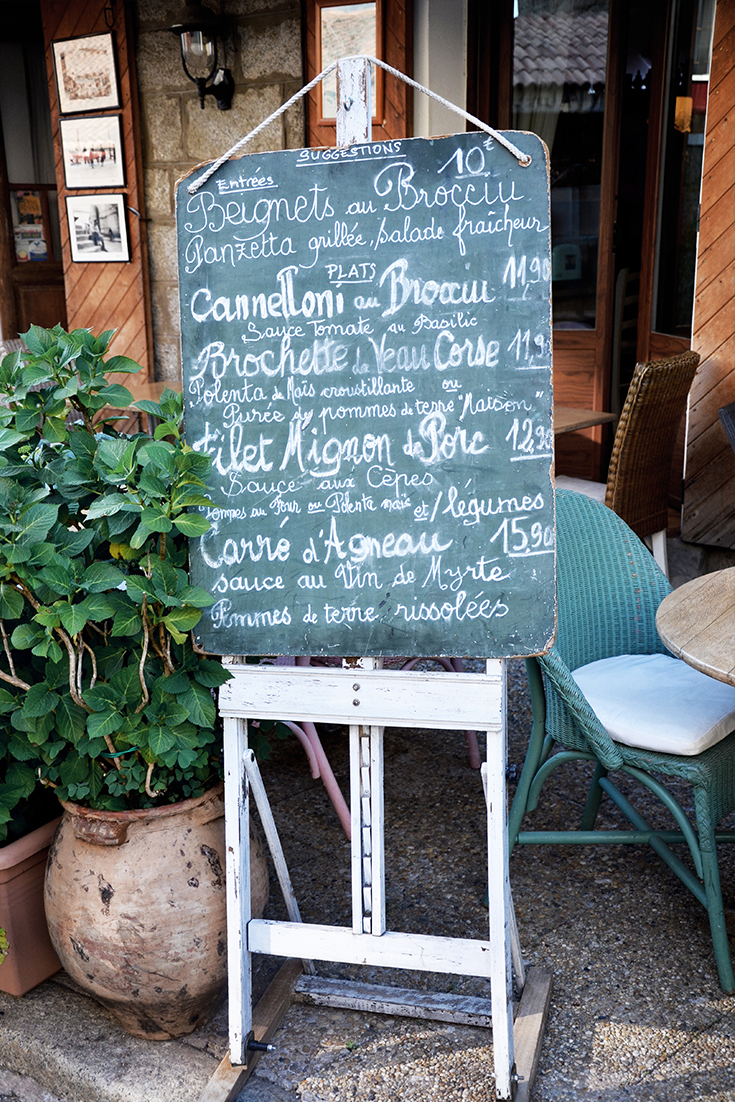 SUGGESTIONS
Entrées 10€
Beignets au Brocciu
Panzetta grillée, salade fraîcheur
PLATS 11,90
Cannelloni au Brocciu
Sauce Tomate au Basilic
Brochette de Veau Corse 11,9
Polenta de Maïs croustillante ou
Purée de pommes de terre "Maison"
Filet Mignon de Porc 12,9
Sauce aux Cèpes
Pommes au Four ou Polenta maïs et/légumes
Carré d'Agneau 15,90
sauce au Vin de Myrte
Pommes de terre rissolées